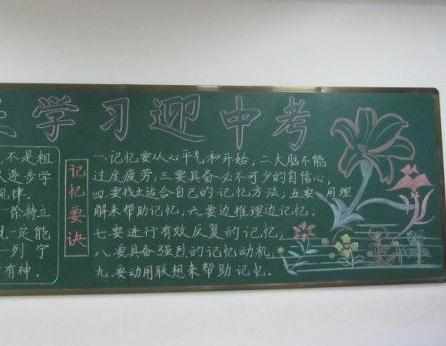 学习迎中考
不是粗
逐步学
律.
一阶特立
一定能
一列宁
有神.
记忆要诀
一.记忆要从心平气和开始,二.大脑不能
过度疲劳,三.要具备必不可少的自信心,
四.要找出适合自己的记忆方法,五.要用理
解来帮助记忆,六.要边推理边记忆.
七.要进行有效反复的记忆,
八.要具备强烈的记忆动机,
九.要动用联想来帮助记忆.